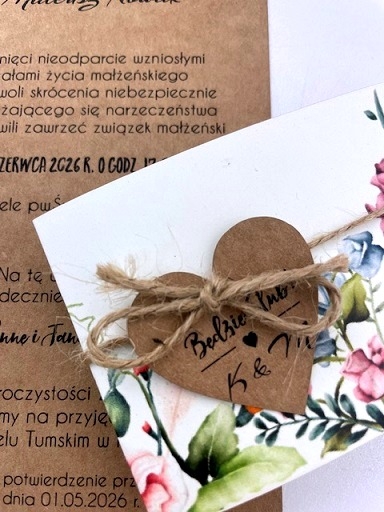 Mateusz Nowak
nięci nieodparcie wzniosłymi
ałami życia małżeńskiego
woli skrócenia niebezpiecznie
żającego się narzeczeństwa
wili zawrzeć związek małżeński
ZERWCA 2026 R. O GODZ. 17
ele pw.Ś
Na tę u
decznie
nne i Jan
roczystości
my na przyję
elu Tumskim w
potwierdzenie prz
dnia 01.05.2026 r.
Będzie Ślub!
K & M